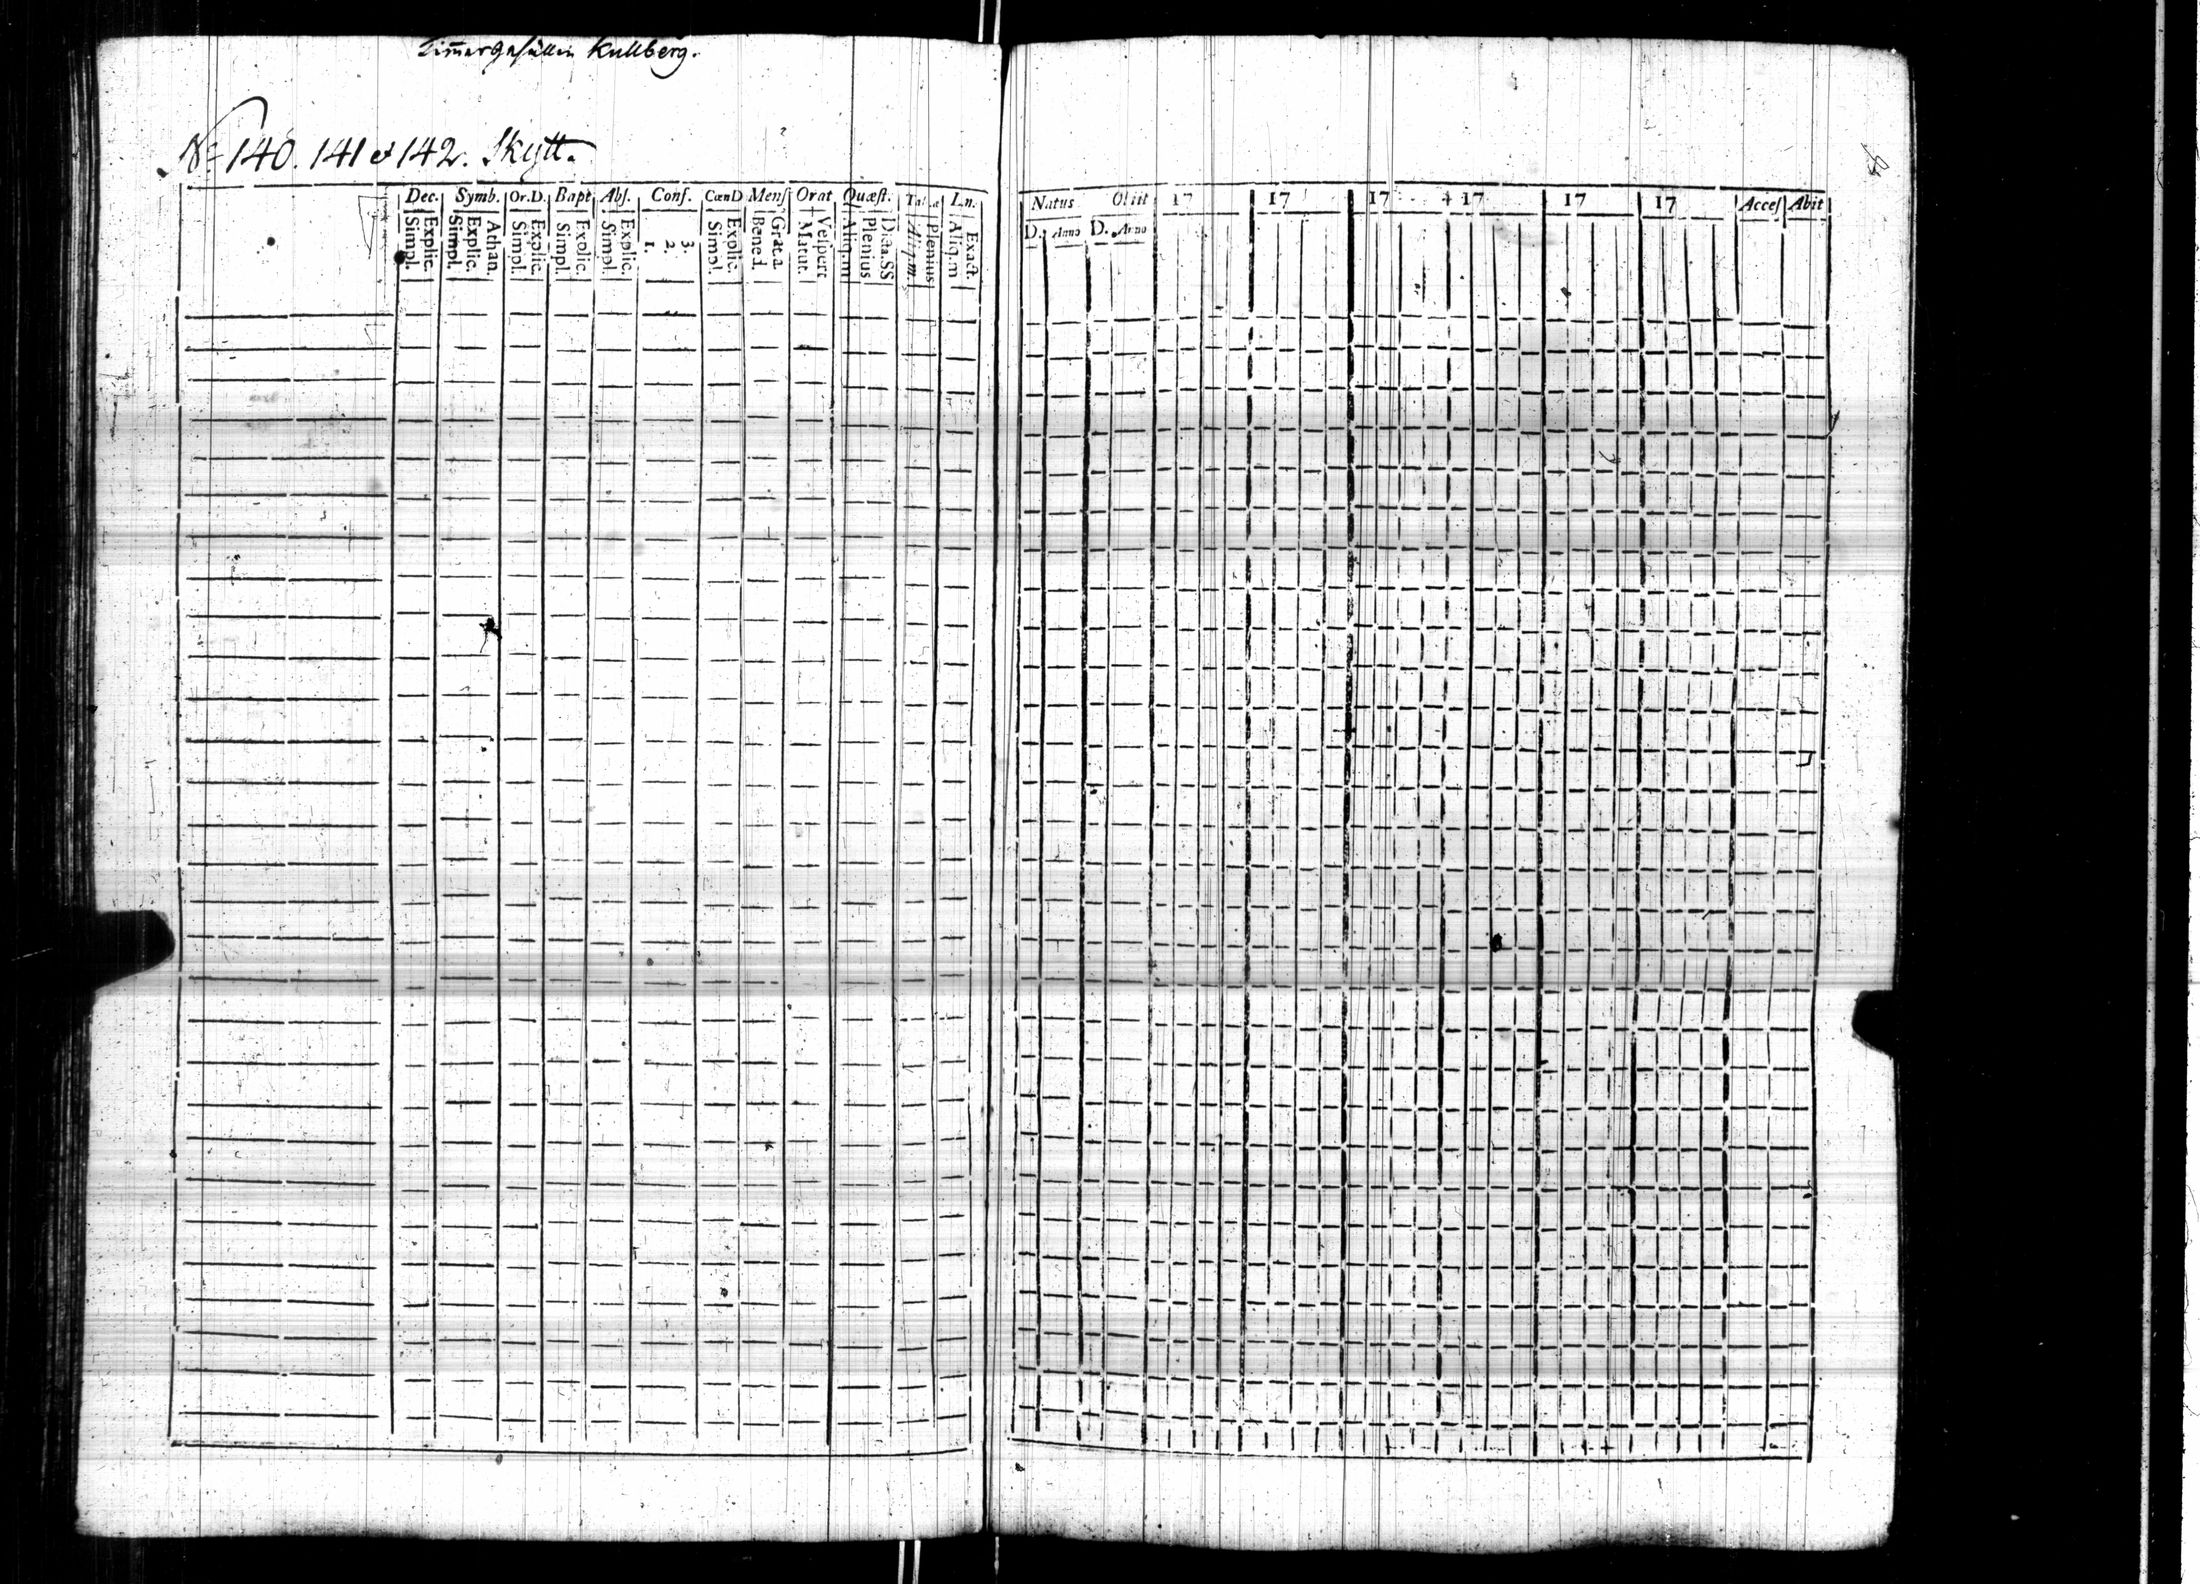 Timergesällen Kullberg.
No 140. 141 et 142. Skytt.
Dec. Symb. Or.D. Bapt Abs. Conf. CœnD Mens Orat Quæst. L.n.
Simpl. Explic. Simpl. Explic. Athan. Simpl. Explic. Simpl. Explic. Simpl. Explic. 1. 2. 3. Simpl. Explic. Bened. Grat.a Matut. Vespert Aliq.m Plenius Dicta SS Aliq.m Plenius Aliq.m Exact.
Natus Obiit 17 17 17 17 17 17 Acces Abit
D. Anno D. Anno